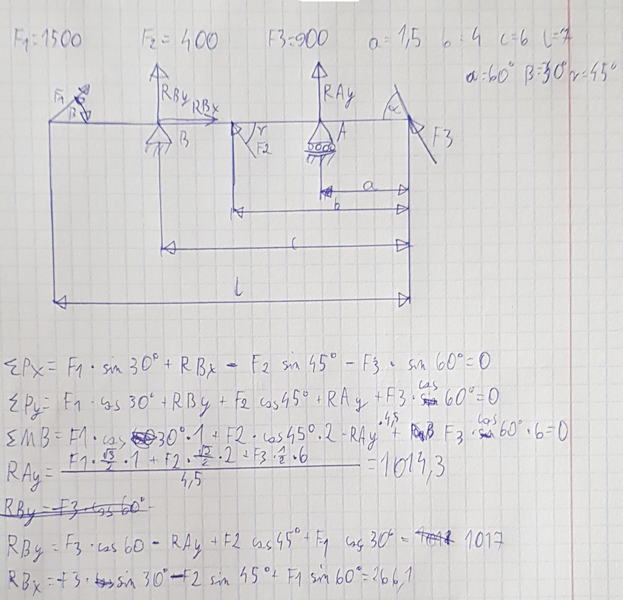 F1=1500 F2=400 F3=900 a=1,5 b=4 c=6 l=7
α=60° β=30° r=45°
F1 β RBy RBx B r F2 RAy A α F3
a
b
c
l
ΣPx = F1 · sin 30° + RBx - F2 sin 45° - F3 · sin 60° = 0
ΣPy = F1 · cos 30° + RBy + F2 cos 45° + RAy + F3 · cos 60° = 0
ΣMB = F1 · cos 30° · 1 + F2 · cos 45° · 2 - RAy · 4,5 + F3 · cos 60° · 6 = 0
RAy = F1 · √3/2 · 1 + F2 · √2/2 · 2 + F3 · 1/2 · 6 / 4,5 = 1014,3
RBy = F3 cos 60°
RBy = F3 · cos 60 - RAy + F2 cos 45° + F1 cos 30° = 1017
RBx = F3 · sin 30° - F2 sin 45° + F1 sin 60° = 266,1